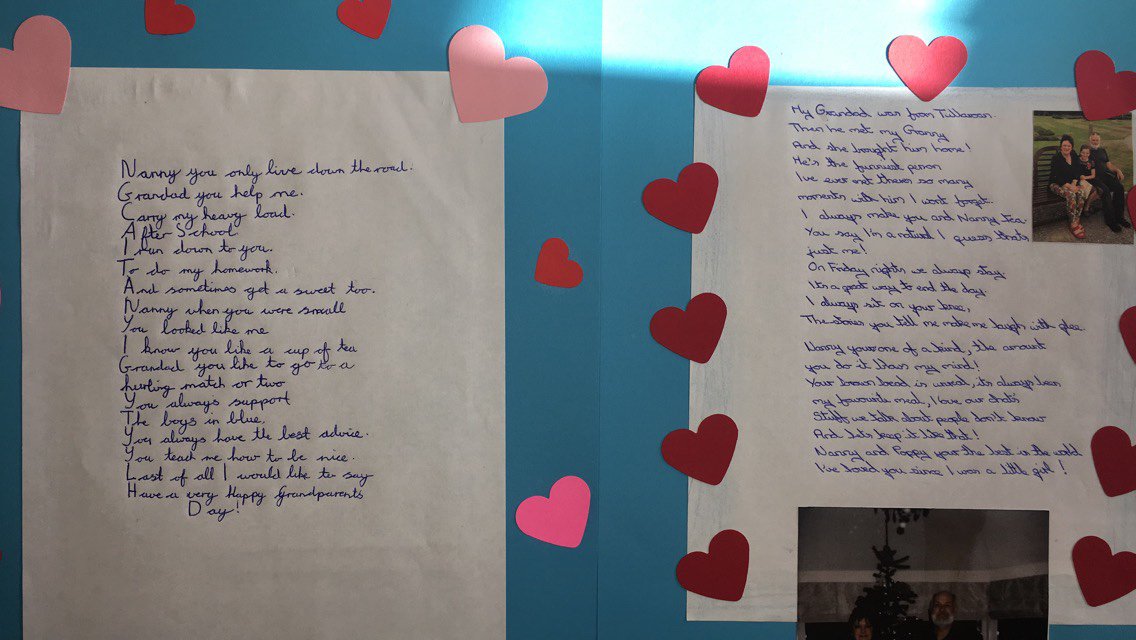 Nanny you only live down the road.
Grandad you help me.
Carry my heavy load.
After School.
I run down to you.
To do my homework.
And sometimes get a sweet too.
Nanny when you were small
You looked like me
I know you like a cup of tea
Grandad you like to go to a
hurling match or two
You always support
The boys in blue.
You always have the best advice.
You teach me how to be nice.
Last of all I would like to say
Have a very Happy Grandparents
Day!
My Grandad was from Tullaroan.
Then he met my Granny
And she brought him home!
He's the funniest person
I've ever met theres so many
moments with him I wont forget.
I always make you and Nanny tea.
You say I'm a natural I guess thats
just me!
On Friday nights we always stay.
Its a great way to end the day
I always sit on your knee,
The stories you tell me make me laugh with glee.
Nanny your one of a kind, the amount
you do it blows my mind!
Your brown bread is unreal, its always been
my favourite meal, I love our chats
Stuff we talk about people don't know
And lets keep it like that!
Nanny and Poppy your the best in the world
I've loved you since I was a little girl!